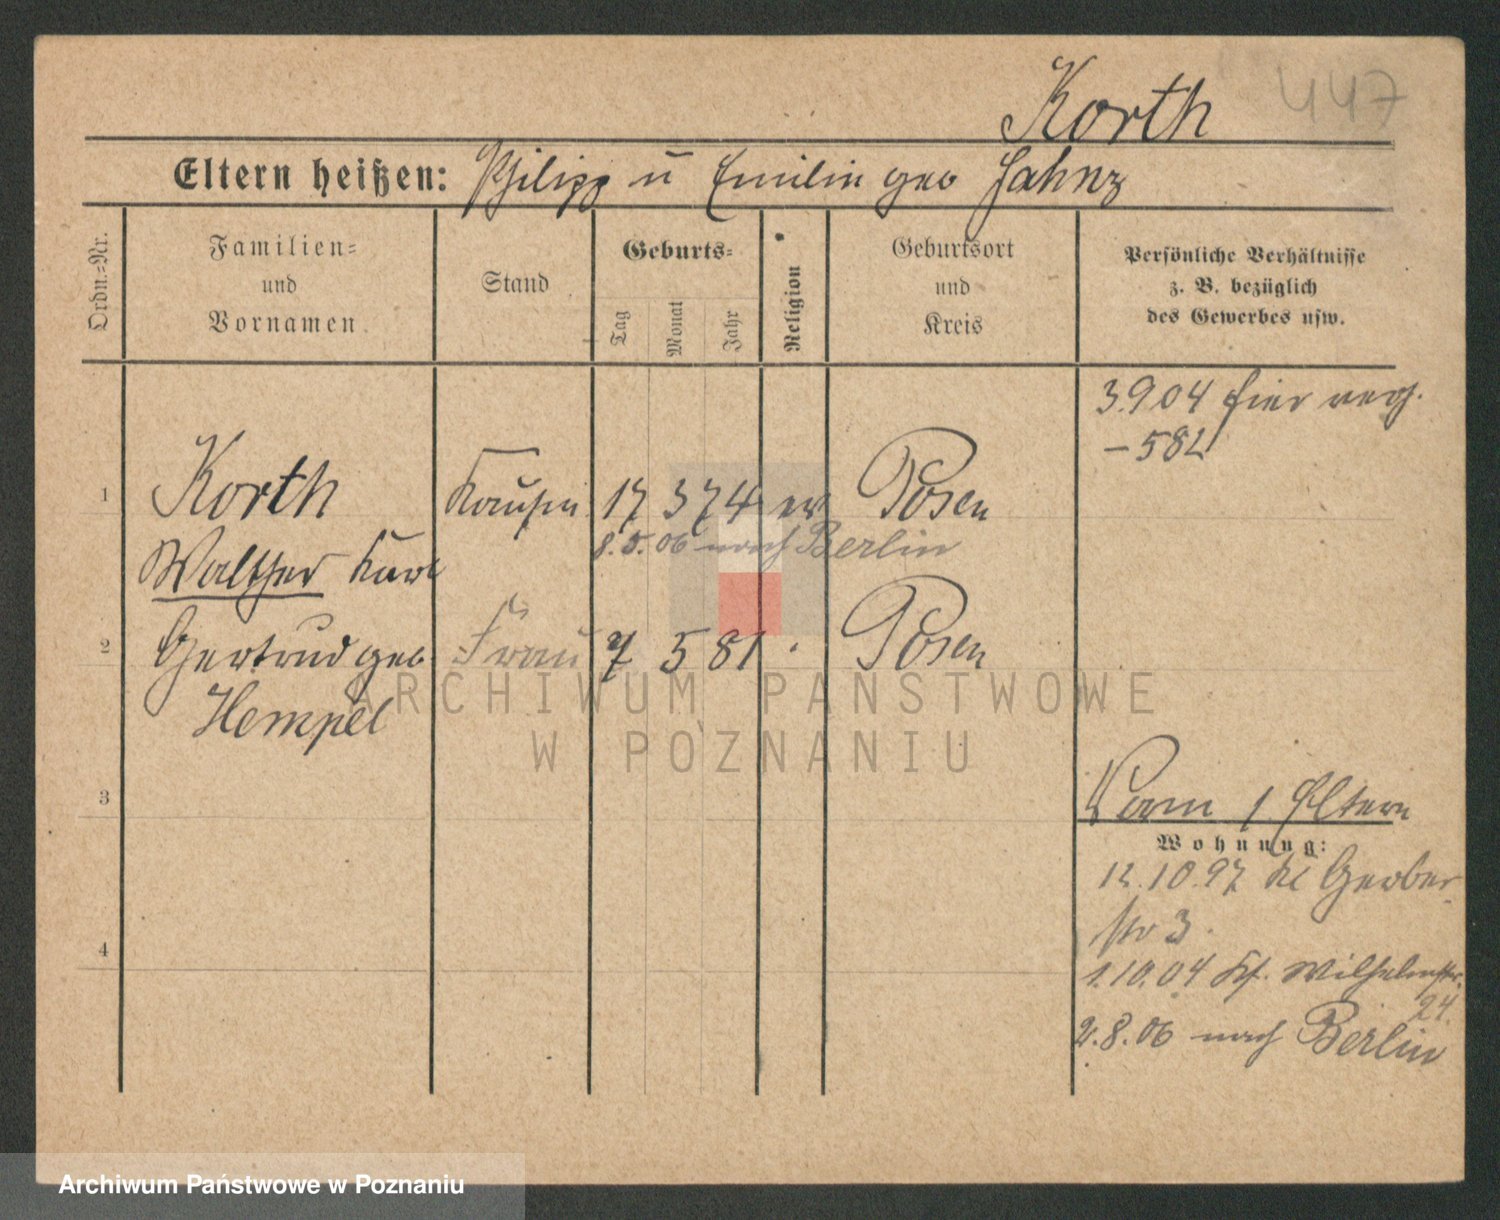 Korth 447
Eltern heißen: Philipp u Emilie geb Jahnz
Ordn.=Nr.
Familien=
und
Vornamen
Stand
Geburts=
Tag
Monat
Jahr
Religion
Geburtsort
und
Kreis
Persönliche Verhältnisse
z. B. bezüglich
des Gewerbes usw.
3.9 04 hier
– 582
1 Korth Kaufm 17 3 74 ev Posen
8.5.06 nach Berlin
Walther Karl
2 Gertrud geb Frau 7 5 81 Posen
Hempel
ARCHIWUM PAŃSTWOWE
W POZNANIU
3
Eltern
Wohnung:
12.10.97 Kl Gerber
str 3.
4
1.10.04 Wilhelmstr.
24.
2.8.06 nach Berlin
Archiwum Państwowe w Poznaniu